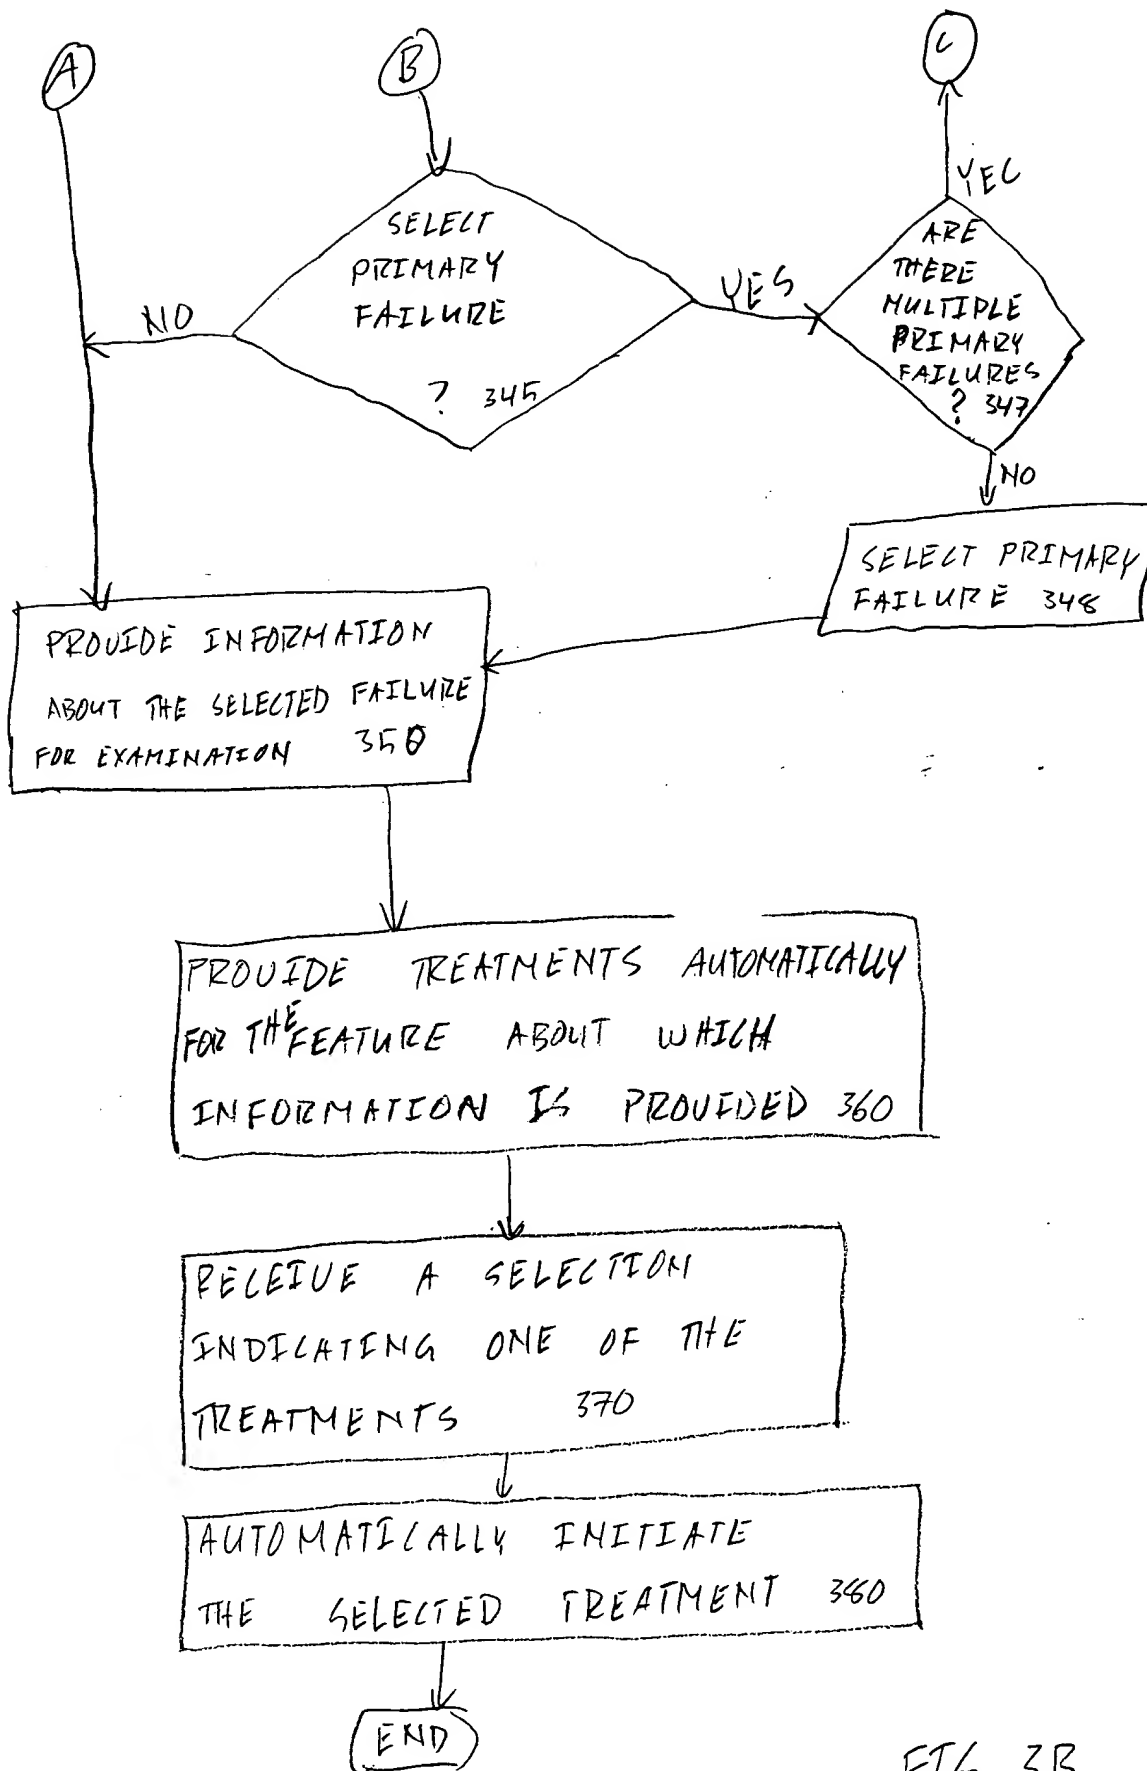 A
B
C
SELECT
PRIMARY
FAILURE
? 345
NO
YES
YEC
ARE
THERE
MULTIPLE
PRIMARY
FAILURES
? 347
NO
SELECT PRIMARY
FAILURE 348
PROVIDE INFORMATION
ABOUT THE SELECTED FAILURE
FOR EXAMINATION 350
PROVIDE TREATMENTS AUTOMATICALLY
FOR THE FEATURE ABOUT WHICH
INFORMATION IS PROVIDED 360
RECEIVE A SELECTION
INDICATING ONE OF THE
TREATMENTS 370
AUTOMATICALLY INITIATE
THE SELECTED TREATMENT 380
END
FIG 3B